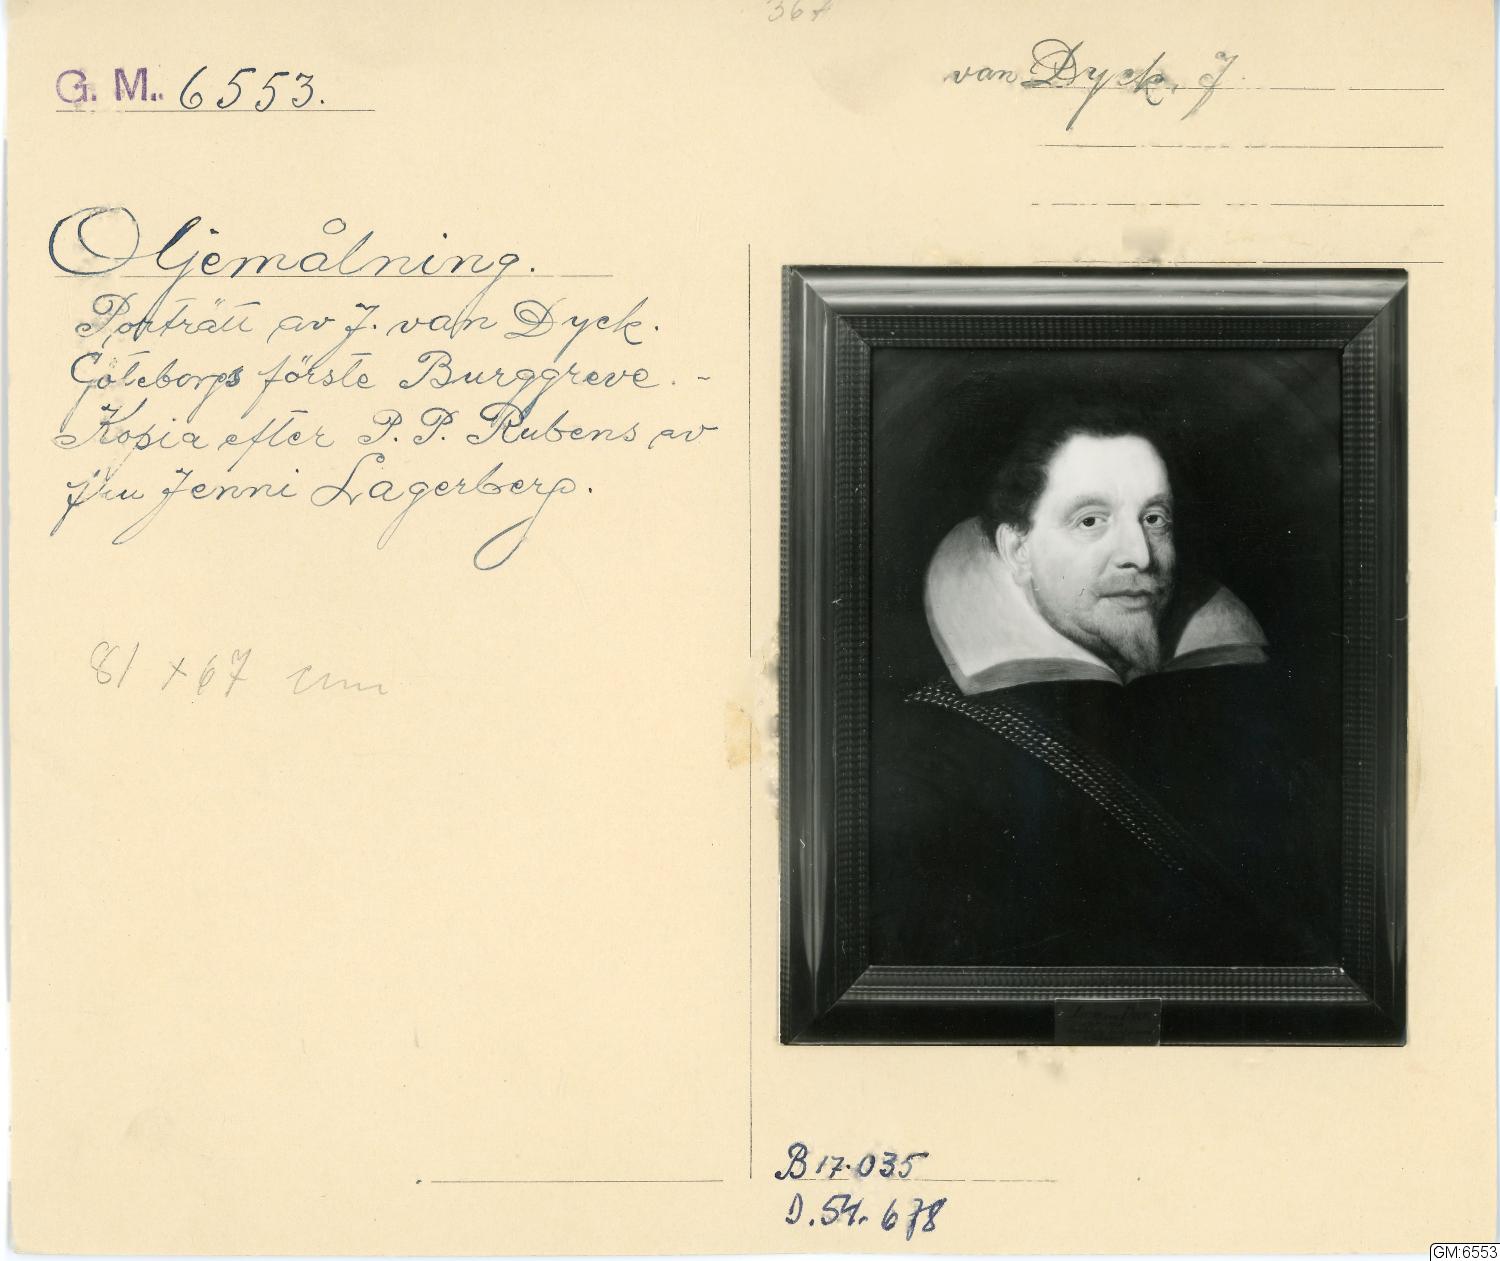 G. M. 6553.
van Dyck, J.
Oljemålning.
Porträtt av J. van Dyck.
Göteborgs förste Burggreve. -
Kopia efter P. P. Rubens av
fru Jenni Lagerberg.
81 x 67 cm
B 17.035
D. 54. 678
GM:6553